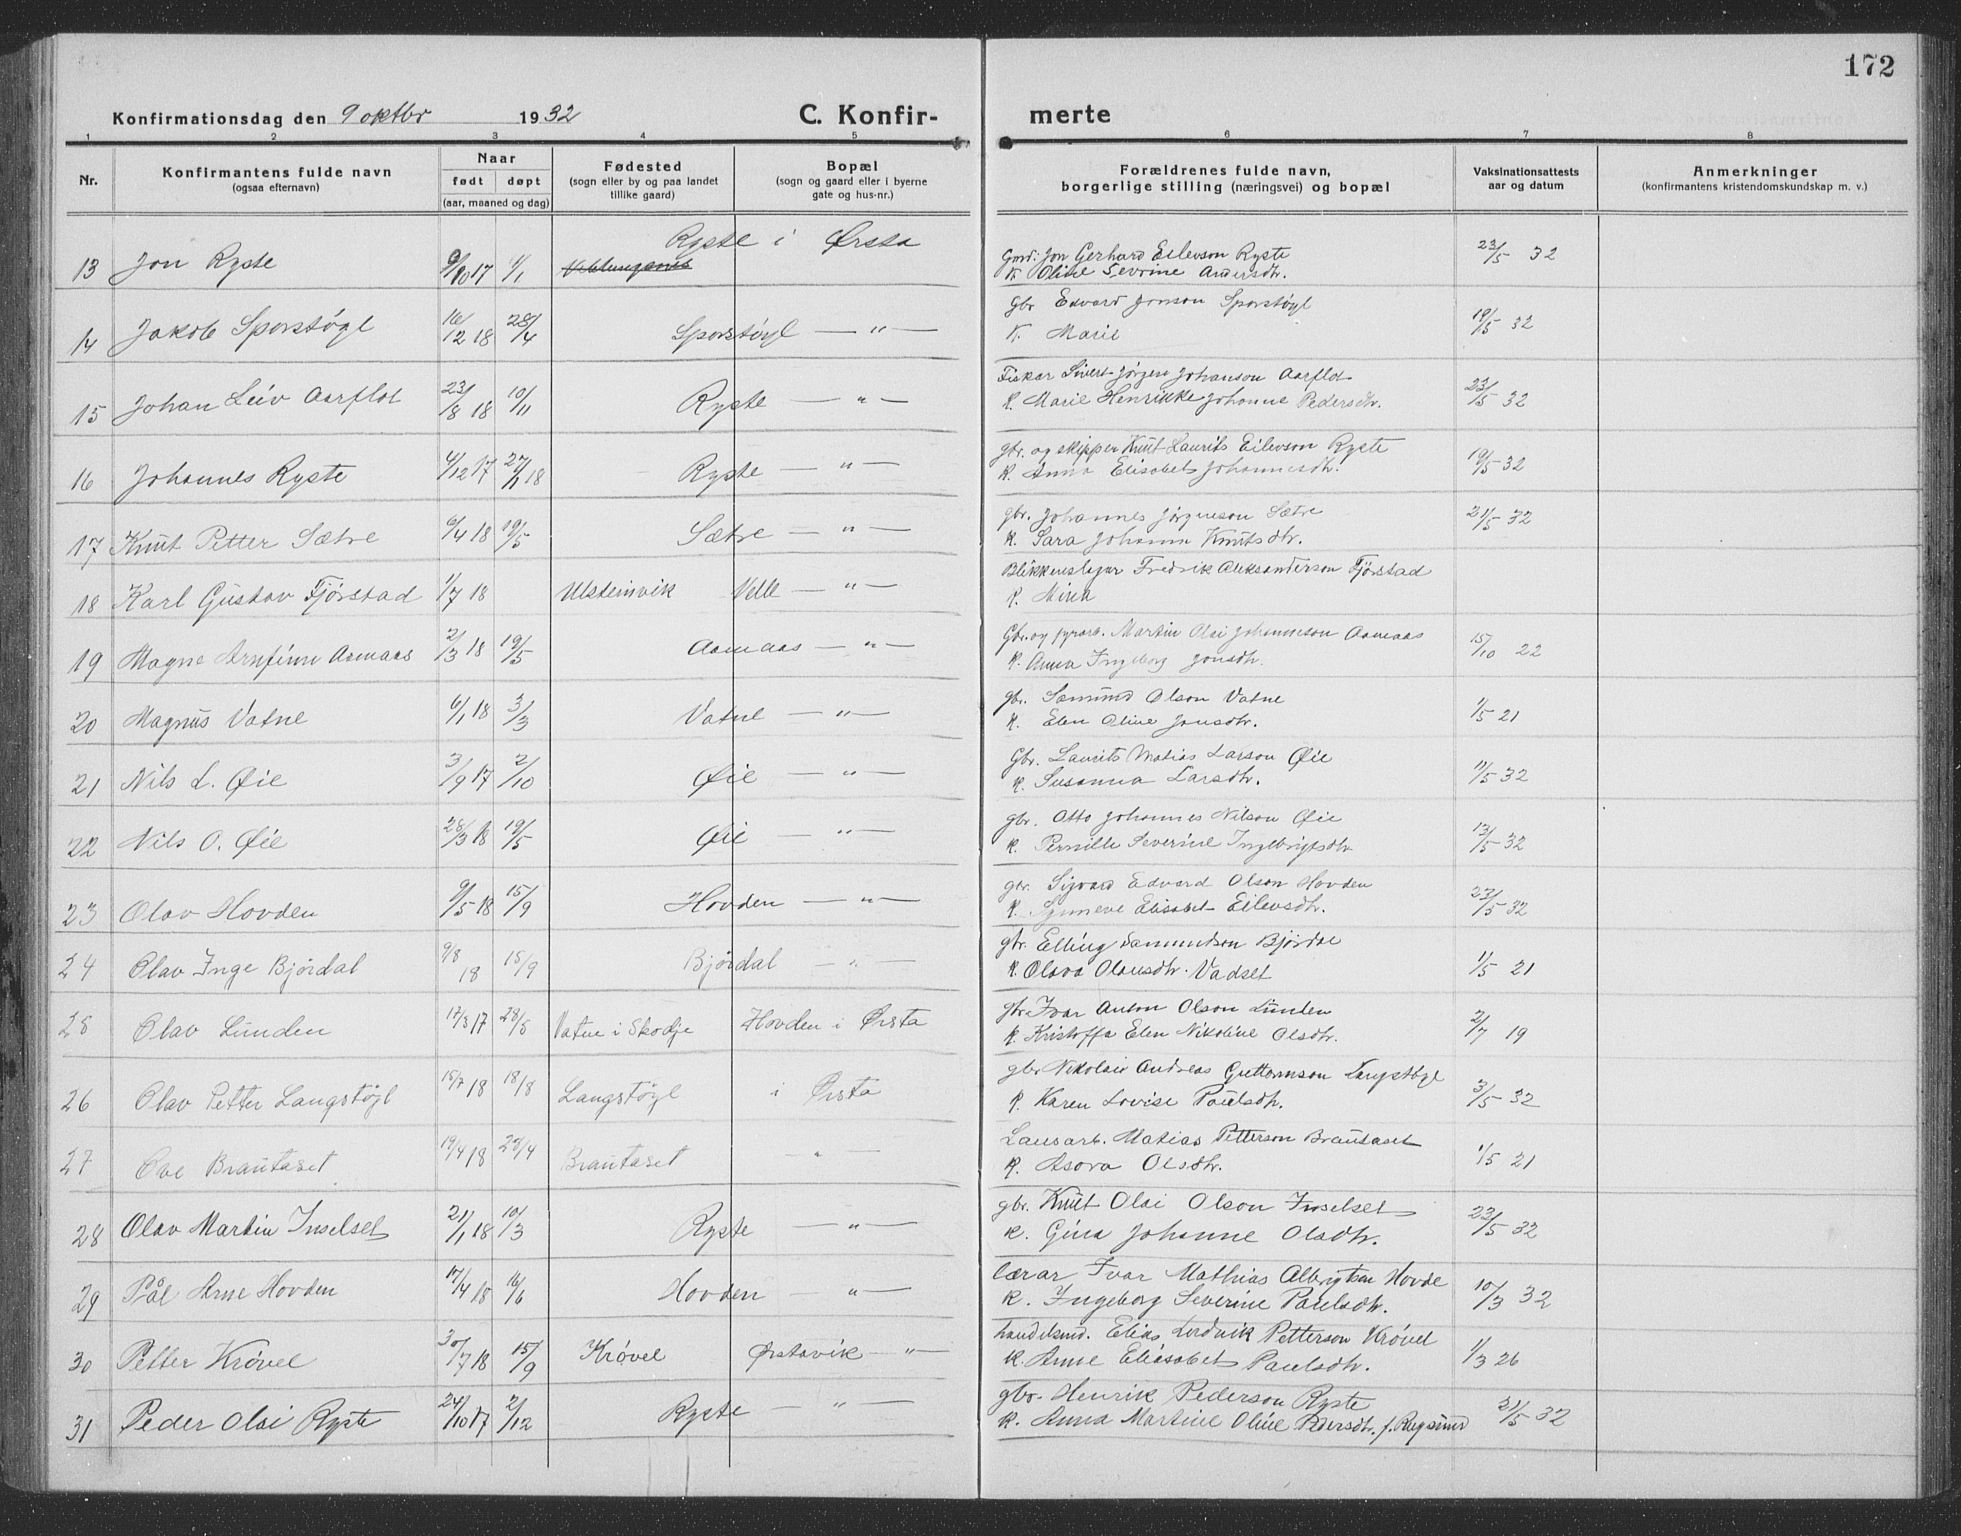 172
Konfirmationsdag den 9 oktbr 1932 C. Konfir-merte
1 2 3 4 5 6 7 8
Nr. Konfirmantens fulde navn (ogsaa efternavn) Naar født døpt (aar, maaned og dag) Fødested (sogn eller by og paa landet tillike gaard) Bopæl (sogn og gaard eller i byerne gate og hus-nr.) Forældrenes fulde navn, borgerlige stilling (næringsvei) og bopæl Vaksinationsattests aar og datum Anmerkninger (konfirmantens kristendomskundskap m. v.)
13 Jon Ryste 9/10 17 1/1 Ryste i Ørsta Jon Gerhard Eilevson Ryste 23/5 32
K. Oline Sevrine Andersdtr.
14 Jakob Sporstøyl 16/12 18 28/4 Sporstøyl — " — Gbr Edvard Jonson Sporstøyl 19/5 32
K. Marie
15 Johan Leiv Aarflot 23/8 18 10/11 Ryste — " — Fiskar Sivert Jørgen Johanson Aarflot 23/5 32
K. Marie Henrikke Johanne Pedersdtr.
16 Johannes Ryste 4/12 17 27/1 18 Ryste — " — gbr. og skipper Knut Laurits Eilevson Ryste 19/5 32
K. Anna Elisabet Johannesdtr.
17 Knut Petter Sætre 6/4 18 19/5 Sætre — " — gbr. Johannes Jørgenson Sætre 21/5 32
K. Sara Johanna Knutsdtr.
18 Karl Gustav Fjørstad 1/7 18 Ulsteinvik Velle " — Blikkenslagar Fredrik Aleksanderson Fjørstad
K. Mina
19 Magne Arnfinn Aamaas 2/3 18 19/5 Aamaas — " — Gbr. og fyrarb. Martin Olai Johanneson Aamaas 15/10 22
K. Anna Ingeborg Jonsdtr.
20 Magnus Vatne 6/1 18 3/3 Vatne — " — gbr. Samund Olson Vatne 1/5 21
K. Elen Oline Jonsdtr.
21 Nils L. Øie 3/9 17 2/10 Øie — " — Gbr. Laurits Matias Larson Øie 11/5 32
K. Susanna Larsdtr.
22 Nils O. Øie 28/3 18 19/5 Øie — " — gbr. Otto Johannes Nilson Øie 13/5 32
K. Pernille Severine Ingebrigtsdtr
23 Olav Hovden 9/5 18 15/9 Hovden — " — gbr. Sigvard Edvard Olson Hovden 23/5 32
K. Synneve Elisabet Eilevsdtr.
24 Olav Inge Bjørdal 9/8 18 15/9 Bjørdal — " — gbr. Elling Samundson Bjørdal 1/5 21
K. Olava Olausdtr. Vadset
25 Olav Lunden 17/3 17 28/5 Vatne i Skodje Hovden i Ørsta gbr. Ivar Anton Olson Lunden 2/7 19
K. Kristoffa Elen Nikoline Olsdtr.
26 Olav Petter Langstøyl 15/7 18 18/8 Langstøyl i Ørsta gbr Nikolai Andreas Guttormson Langstøyl 3/5 32
K. Karen Lovise Paulsdtr.
27 Ove Brautaset 19/4 18 28/4 Brautaset - " - Lausarb. Matias Petterson Brautaset 1/5 21
K. Asora Olsdtr.
28 Olav Martin Inselset 21/1 18 10/3 Ryste — " — gbr. Knut Olai Olson Inselset 23/5 32
K. Gina Johanne Olsdtr.
29 Pål Arne Hovden 17/4 18 16/6 Hovden — " — lærar Ivar Mathias Albrigtsen Hovde 10/3 32
K. Ingeborg Severine Paulsdtr.
30 Petter Krøvel 30/7 18 15/9 Krøvel Ørstavik — " — handelsmd. Elias Ludvik Petterson Krøvel 1/3 26
K. Anne Eliasabet Paulsdtr.
31 Peder Olai Ryste 24/10 17 2/12 Ryste — " — gbr. Henrik Pederson Ryste 31/5 32
K. Anna Martine Oline Pedersdtr.